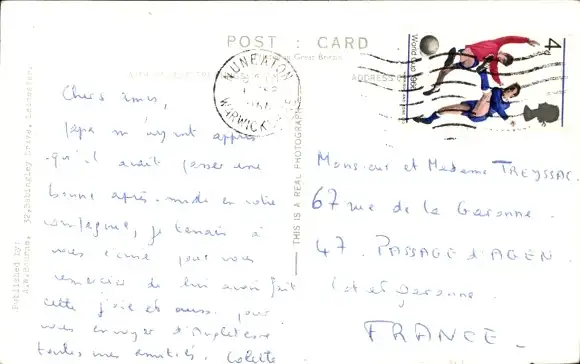 POST CARD
Great Britain
ADDRESS
Chers amis,
Papa m'ayant appris
qu'il avait passer une
bonne après-midi en votre
compagnie, je tenais à
vous écrire pour vous
remercier de lui avoir fait
cette joie et aussi pour
vous envoyer d'Angleterre
toutes mes amitiés. Colette
THIS IS A REAL PHOTOGRAPH
Published by:
A.W.Bourne, 32,Babingley Drive, Leicester.
NUNEATON
WARWICKSHIRE
4d
World Cup 1966
Monsieur et Madame TREYSSAC.
67 rue de la Garonne.
47. PASSAGE d'AGEN
Lot et Garonne.
FRANCE.